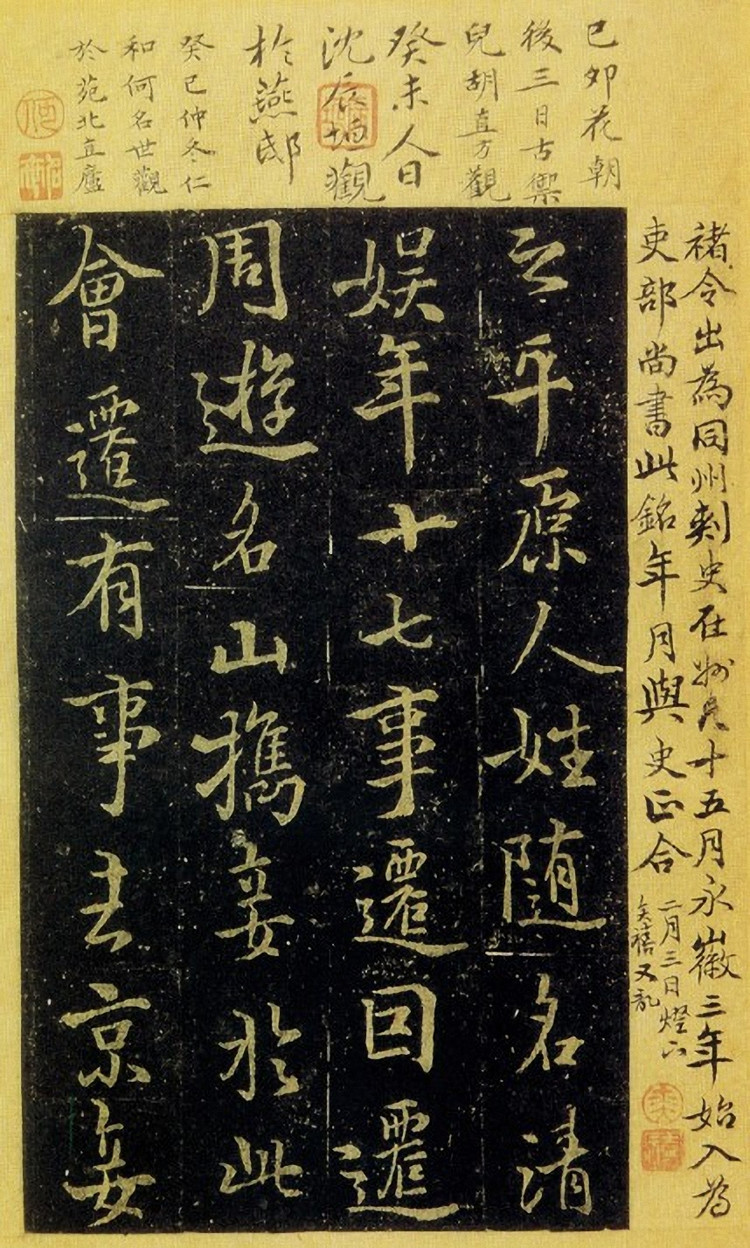 己卯花朝
後三日古禦
兒胡直方觀
癸未人日
沈辰垣觀
於燕邸
癸巳仲冬仁
和何名世觀
於苑北直廬
褚令出為同州刺史在州凡十五月永徽三年始入為
吏部尚書此銘年月與史正合
二月三日燈下
奕禧又記
之平原人姓随名清
娱年十七事遷因遷
周遊名山攜妾於此
會遷有事去京妾